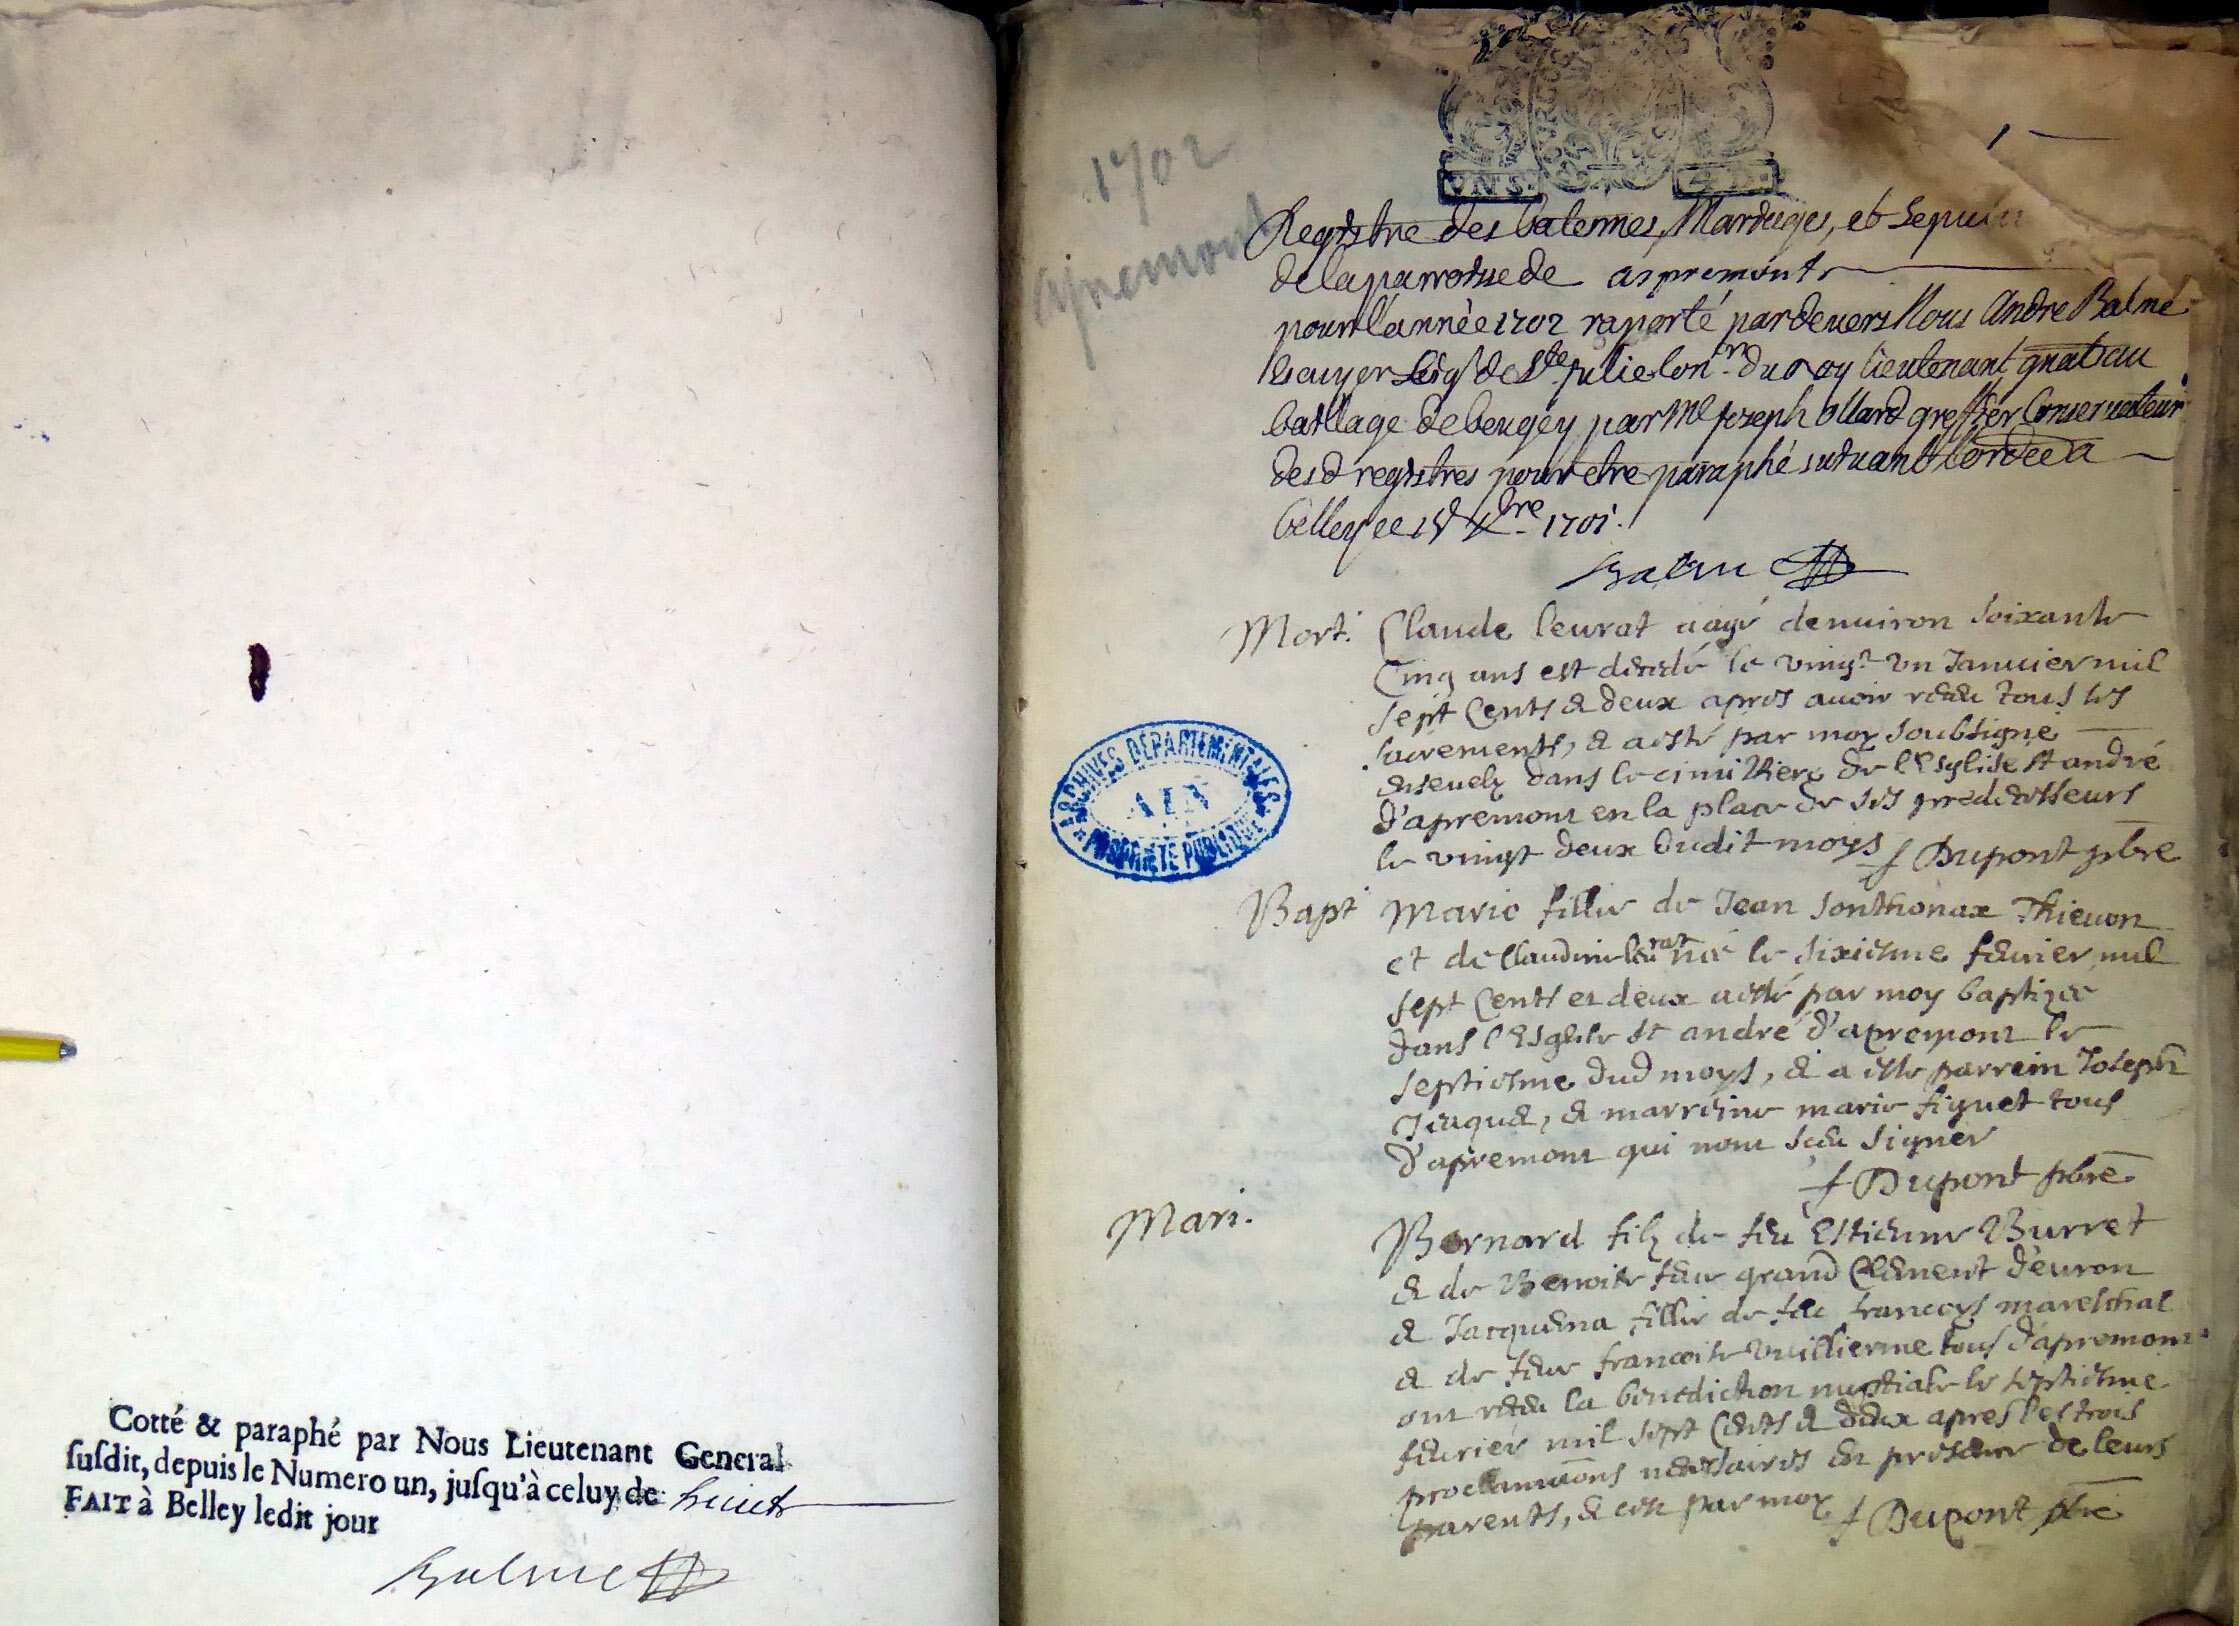 Cotté & paraphé par Nous Lieutenant General
ſuſdit, depuis le Numero un, juſqu'à celuy de huict
FAIT à Belley ledit jour
Balme
1702
apremont
VN S. 4 D.
Registre des batemes, Mariages, et sepultu
de la parroisse de aspremont
pour l'année 1702 raporté pardevers Nous Andre Balme
Escuyer Seigr de Ste julie Con.er du Roy lieutenant gnal au
bailliage de beugey par Me joseph ollard greffier Conservateur
desd registres pour etre paraphé suivant l'ordce a
belley ce Xbre 1701.
Balme
Mort. Claude leurat aagé denuiron soixante
Cinq ans est decedé le vingt vn Januier mil
sept Cents & deux apres auoir receu tous les
sacrements, & a esté par moy soubsigné
enseuely dans le cimithiere de l'Esglise st andré
d'apremont en la place de ses predecesseurs
le vingt deux dudit moys f Dupont pbre
Bapt Marie fillie de Jean Sonthonax Thieuon
et de Claudine leurat née le sixiesme feurier mil
sept Cents et deux a esté par moy baptizée
dans l'Esglise st andré d'apremont le
septiesme dud moys, & a esté parrein Joseph
Jaques, & marreine marie figuet tous
d'apremont qui nont sceu signer
f Dupont pbre
Mari. Bernard filz de feu Estienne Burret
& de Benoite feue grand Clement d'euron
& Jacquema fillie de feu francoys mareschal
& de feue francoise vuillierme tous d'apremont
ont receu la benediction nuptiale le septiesme
feurier mil sept Cents & deux apres les trois
proclamaons necessaires en presence de leurs
parents, & ce par moy f Dupont pbre
ARCHIVES DÉPARTEMENTALES
AIN
PROPRIÉTÉ PUBLIQUE